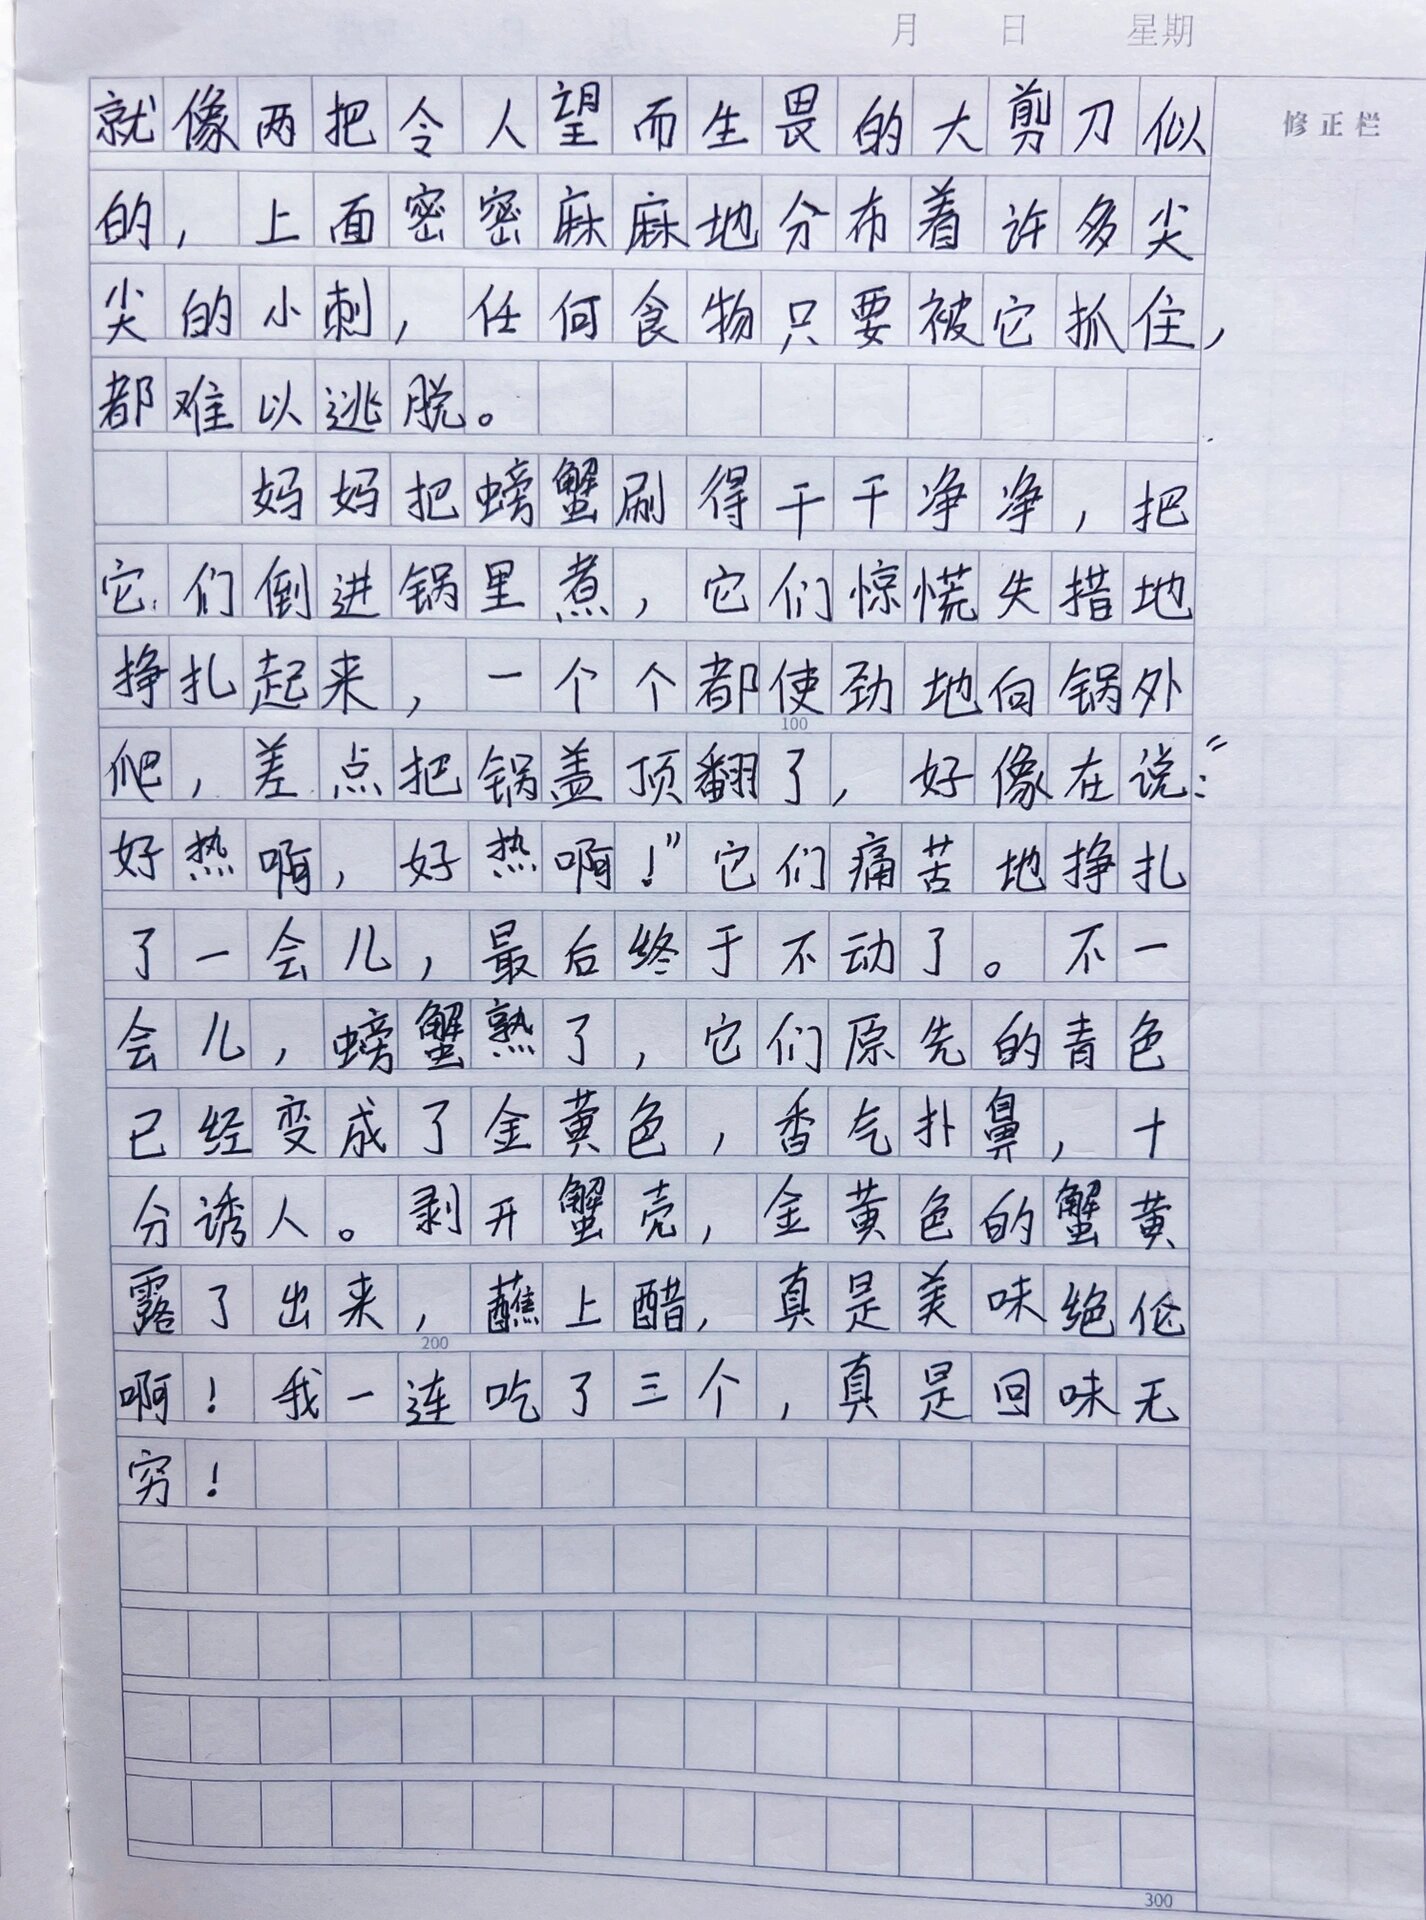 月 日 星期
修正栏
就像两把令人望而生畏的大剪刀似
的，上面密密麻麻地分布着许多尖
尖的小刺，任何食物只要被它抓住，
都难以逃脱。
妈妈把螃蟹刷得干干净净，把
它们倒进锅里煮，它们惊慌失措地
挣扎起来，一个个都使劲地向锅外
100
爬，差点把锅盖顶翻了，好像在说：“
好热啊，好热啊！”它们痛苦地挣扎
了一会儿，最后终于不动了。不一
会儿，螃蟹熟了，它们原先的青色
已经变成了金黄色，香气扑鼻，十
分诱人。剥开蟹壳，金黄色的蟹黄
露了出来，蘸上醋，真是美味绝伦
200
啊！我一连吃了三个，真是回味无
穷！
300